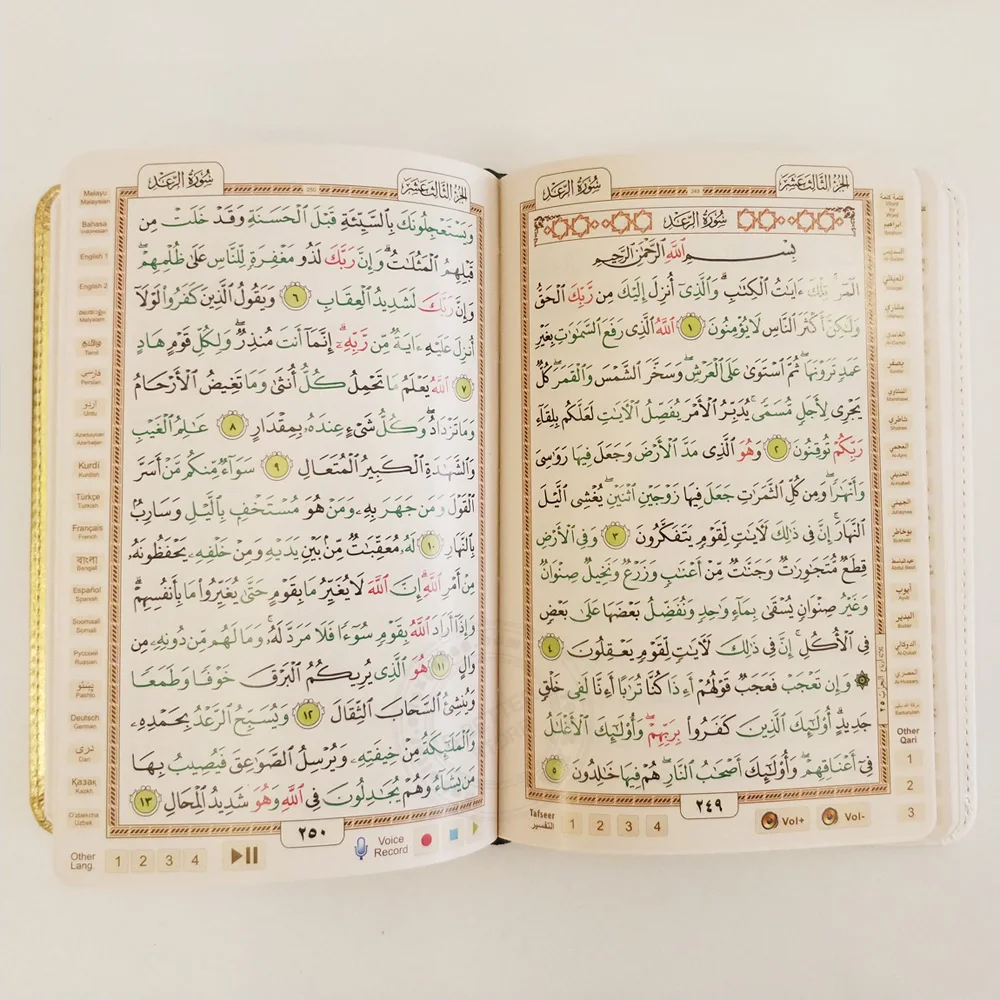 الجزء الثالث عشر
249
سُورَةُ الرَّعْد
سُورَةُ الرَّعْد
بِسْمِ اللَّهِ الرَّحْمَنِ الرَّحِيمِ
الٓمٓر تِلْكَ ءَايَٰتُ الْكِتَٰبِ وَالَّذِىٓ أُنزِلَ إِلَيْكَ مِن رَّبِّكَ الْحَقُّ
وَلَٰكِنَّ أَكْثَرَ النَّاسِ لَا يُؤْمِنُونَ ١ اللَّهُ الَّذِى رَفَعَ السَّمَٰوَٰتِ بِغَيْرِ
عَمَدٍ تَرَوْنَهَا ثُمَّ اسْتَوَىٰ عَلَى الْعَرْشِ وَسَخَّرَ الشَّمْسَ وَالْقَمَرَ كُلٌّ
يَجْرِى لِأَجَلٍ مُّسَمًّى يُدَبِّرُ الْأَمْرَ يُفَصِّلُ الْءَايَٰتِ لَعَلَّكُم بِلِقَآءِ
رَبِّكُمْ تُوقِنُونَ ٢ وَهُوَ الَّذِى مَدَّ الْأَرْضَ وَجَعَلَ فِيهَا رَوَٰسِىَ
وَأَنْهَٰرًا وَمِن كُلِّ الثَّمَرَٰتِ جَعَلَ فِيهَا زَوْجَيْنِ اثْنَيْنِ يُغْشِى الَّيْلَ
النَّهَارَ إِنَّ فِى ذَٰلِكَ لَءَايَٰتٍ لِّقَوْمٍ يَتَفَكَّرُونَ ٣ وَفِى الْأَرْضِ
قِطَعٌ مُّتَجَٰوِرَٰتٌ وَجَنَّٰتٌ مِّنْ أَعْنَٰبٍ وَزَرْعٌ وَنَخِيلٌ صِنْوَانٌ
وَغَيْرُ صِنْوَانٍ يُسْقَىٰ بِمَآءٍ وَٰحِدٍ وَنُفَضِّلُ بَعْضَهَا عَلَىٰ بَعْضٍ
فِى الْأُكُلِ إِنَّ فِى ذَٰلِكَ لَءَايَٰتٍ لِّقَوْمٍ يَعْقِلُونَ ٤
۞ وَإِن تَعْجَبْ فَعَجَبٌ قَوْلُهُمْ أَءِذَا كُنَّا تُرَٰبًا أَءِنَّا لَفِى خَلْقٍ
جَدِيدٍ أُو۟لَٰٓئِكَ الَّذِينَ كَفَرُوا۟ بِرَبِّهِمْ وَأُو۟لَٰٓئِكَ الْأَغْلَٰلُ
فِىٓ أَعْنَاقِهِمْ وَأُو۟لَٰٓئِكَ أَصْحَٰبُ النَّارِ هُمْ فِيهَا خَٰلِدُونَ ٥
٢٤٩
كلمة كلمة
Word by Word
ابراهيم
السديس
العفاسي
مشاري
الغامدي
المنشاوي
شاطري
العجمي
الحذيفي
الجهني
بوخاطر
عبد الباسط
أيوب
البدير
الدوكالي
الحصري
Other Qari
1
2
3
Tafseer التفسير 1 2 3 4 Vol+ Vol-
الجزء الثالث عشر
250
سُورَةُ الرَّعْد
وَيَسْتَعْجِلُونَكَ بِالسَّيِّئَةِ قَبْلَ الْحَسَنَةِ وَقَدْ خَلَتْ مِن
قَبْلِهِمُ الْمَثُلَٰتُ وَإِنَّ رَبَّكَ لَذُو مَغْفِرَةٍ لِّلنَّاسِ عَلَىٰ ظُلْمِهِمْ
وَإِنَّ رَبَّكَ لَشَدِيدُ الْعِقَابِ ٦ وَيَقُولُ الَّذِينَ كَفَرُوا۟ لَوْلَآ
أُنزِلَ عَلَيْهِ ءَايَةٌ مِّن رَّبِّهِۦٓ إِنَّمَآ أَنتَ مُنذِرٌ وَلِكُلِّ قَوْمٍ هَادٍ
٧ اللَّهُ يَعْلَمُ مَا تَحْمِلُ كُلُّ أُنثَىٰ وَمَا تَغِيضُ الْأَرْحَامُ
وَمَا تَزْدَادُ وَكُلُّ شَىْءٍ عِندَهُۥ بِمِقْدَارٍ ٨ عَٰلِمُ الْغَيْبِ
وَالشَّهَٰدَةِ الْكَبِيرُ الْمُتَعَالِ ٩ سَوَآءٌ مِّنكُم مَّنْ أَسَرَّ
الْقَوْلَ وَمَن جَهَرَ بِهِۦ وَمَنْ هُوَ مُسْتَخْفٍ بِالَّيْلِ وَسَارِبٌ
بِالنَّهَارِ ١٠ لَهُۥ مُعَقِّبَٰتٌ مِّنۢ بَيْنِ يَدَيْهِ وَمِنْ خَلْفِهِۦ يَحْفَظُونَهُۥ
مِنْ أَمْرِ اللَّهِ إِنَّ اللَّهَ لَا يُغَيِّرُ مَا بِقَوْمٍ حَتَّىٰ يُغَيِّرُوا۟ مَا بِأَنفُسِهِمْ
وَإِذَآ أَرَادَ اللَّهُ بِقَوْمٍ سُوٓءًا فَلَا مَرَدَّ لَهُۥ وَمَا لَهُم مِّن دُونِهِۦ مِن
وَالٍ ١١ هُوَ الَّذِى يُرِيكُمُ الْبَرْقَ خَوْفًا وَطَمَعًا
وَيُنشِئُ السَّحَابَ الثِّقَالَ ١٢ وَيُسَبِّحُ الرَّعْدُ بِحَمْدِهِۦ
وَالْمَلَٰٓئِكَةُ مِنْ خِيفَتِهِۦ وَيُرْسِلُ الصَّوَٰعِقَ فَيُصِيبُ بِهَا
مَن يَشَآءُ وَهُمْ يُجَٰدِلُونَ فِى اللَّهِ وَهُوَ شَدِيدُ الْمِحَالِ ١٣
٢٥٠
Malayu Malaysian
Bahasa Indonesian
English 1
English 2
Malyalam
Tamil
فارسی Persian
اردو Urdu
Azərbaycan Azerbaijan
Kurdi Kurdish
Türkçe Turkish
Français French
বাংলা Bengali
Español Spanish
Soomaali Somali
Русский Russian
پښتو Pashto
Deutsch German
دری Dari
Қазақ Kazakh
O'zbekcha Uzbek
Other Lang. 1 2 3 4 Voice Record